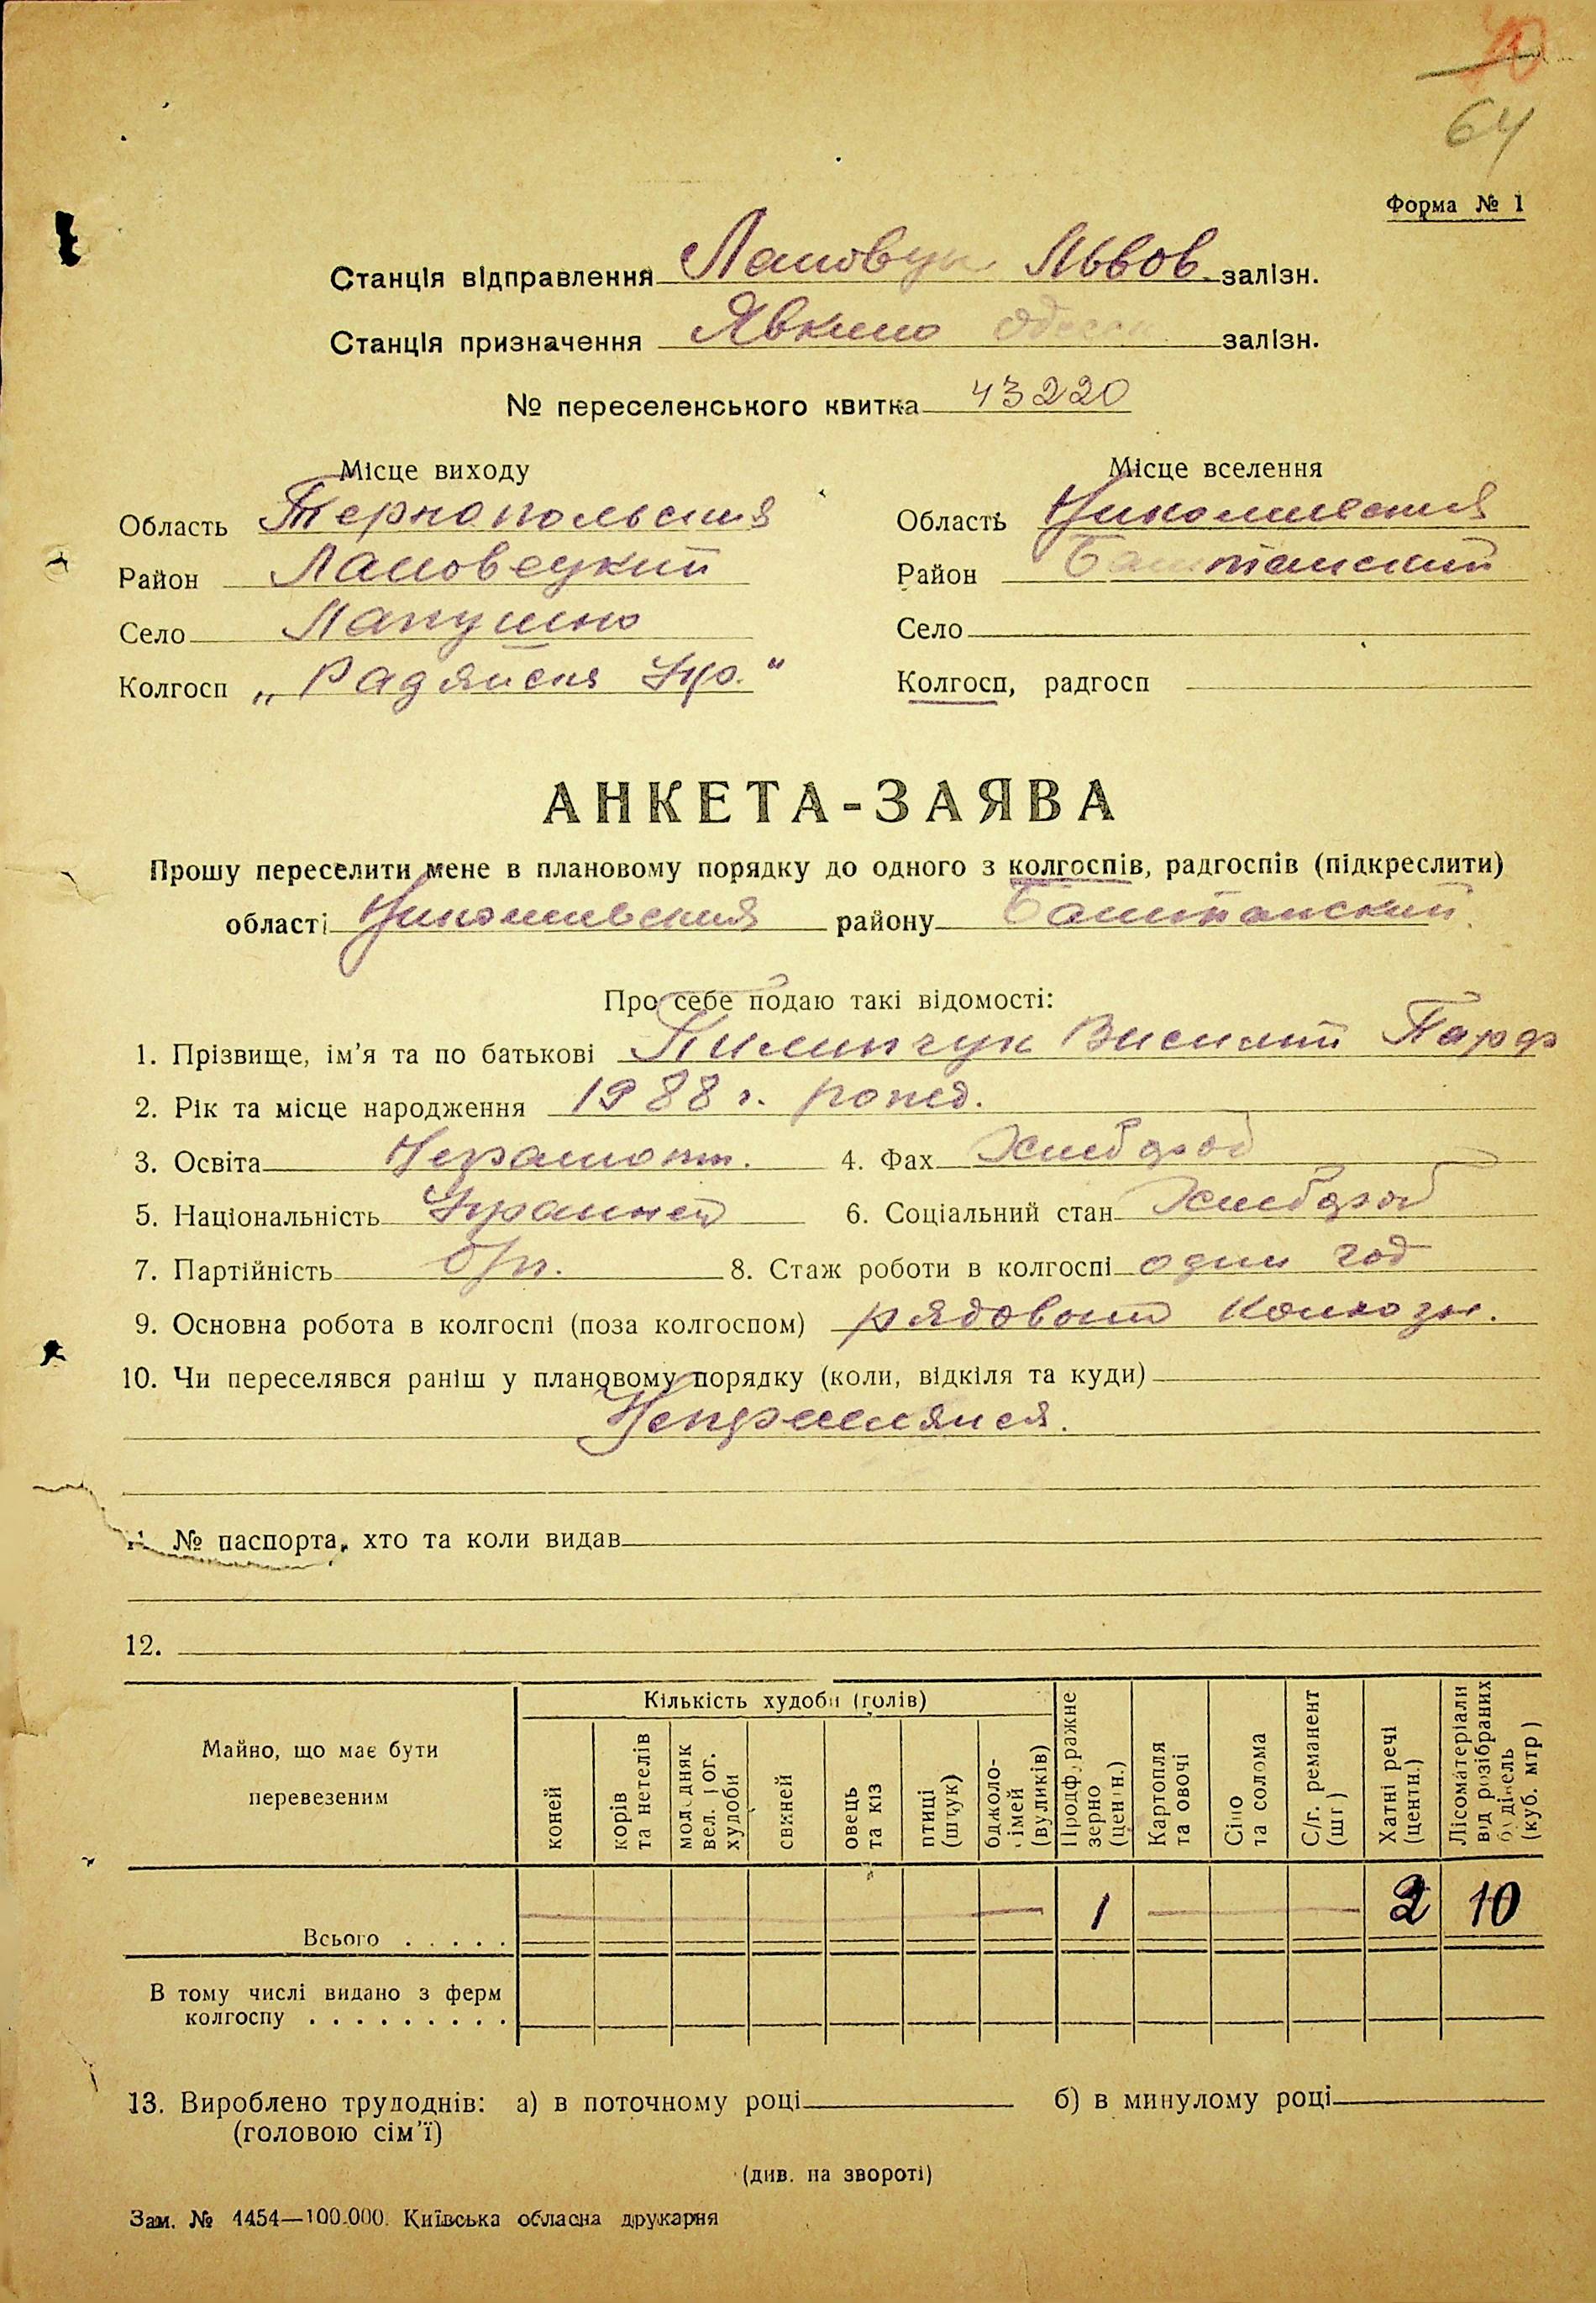 10
64
Форма № 1
Станція відправлення Лановцы Львов. залізн.
Станція призначення Явкино Одесск залізн.
№ переселенського квитка 43220
Місце виходу Місце вселення
Область Тернопольская Область Николаевская
Район Лановецкий Район Баштанский
Село Лапушно Село
Колгосп „Радянска Укр." Колгосп, радгосп
АНКЕТА-ЗАЯВА
Прошу переселити мене в плановому порядку до одного з колгоспів, радгоспів (підкреслити)
області Николаевская району Баштанский
Про себе подаю такі відомості:
1. Прізвище, ім'я та по батькові Василий Парф
2. Рік та місце народження 1988 г. рожд.
3. Освіта Неграмотн. 4. Фах Хлебороб
5. Національність Украинец 6. Соціальний стан Хлебороб
7. Партійність б/п. 8. Стаж роботи в колгоспі один год
9. Основна робота в колгоспі (поза колгоспом) рядовой колхозн.
10. Чи переселявся раніш у плановому порядку (коли, відкіля та куди)
№ паспорта, хто та коли видав
12.
Майно, що має бути перевезеним
Кількість худоби (голів)
коней
корів та нетелів
молодняк вел. рог. худоби
свиней
овець та кіз
птиці (штук)
бджоло-сімей (вуликів)
Продф ражне зерно (центн.)
Картопля та овочі
Сіно та солома
С/г. реманент (шт)
Хатні речі (центн.)
Лісоматеріали від розібраних будівель (куб. мтр)
Всього . . . . . — 1 — 2 10
В тому числі видано з ферм
колгоспу . . . . . . . . .
13. Вироблено трудоднів: а) в поточному році б) в минулому році
(головою сім'ї)
(див. на звороті)
Зам. № 4454—100.000. Київська обласна друкарня